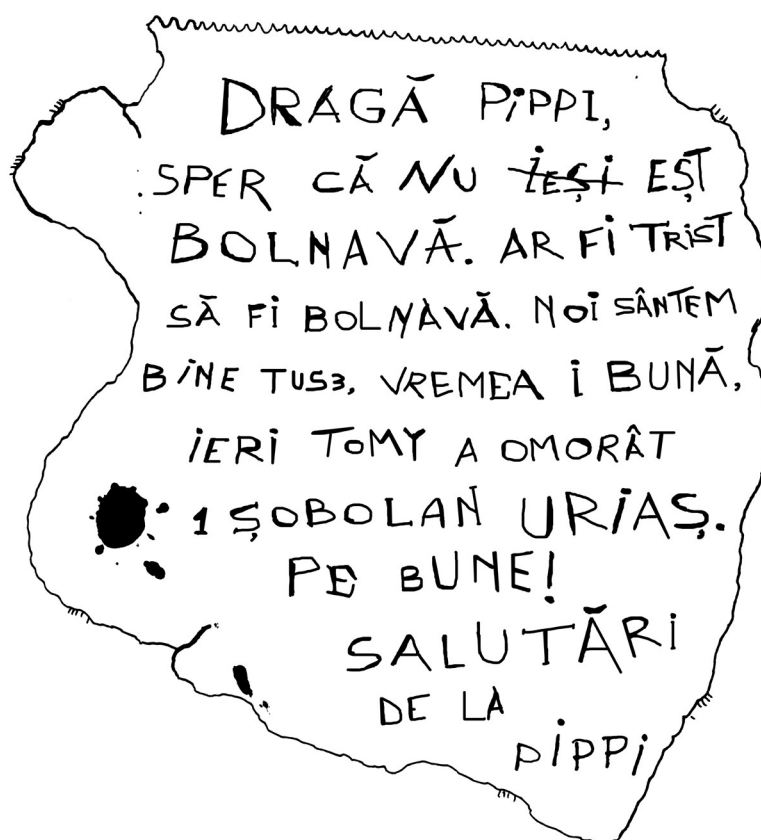 DRAGĂ PiPPI,
SPER CĂ NU ieși EȘT
BOLNAVĂ. AR Fi TRiST
SĂ Fi BOLNAVĂ. NOi SÂNTEM
BiNE TUS3, VREMEA i BUNĂ,
iERi TOMY A OMORÂT
1 ȘOBOLAN URiAȘ.
PE BUNE!
SALUTĂRi
DE LA
PiPPi